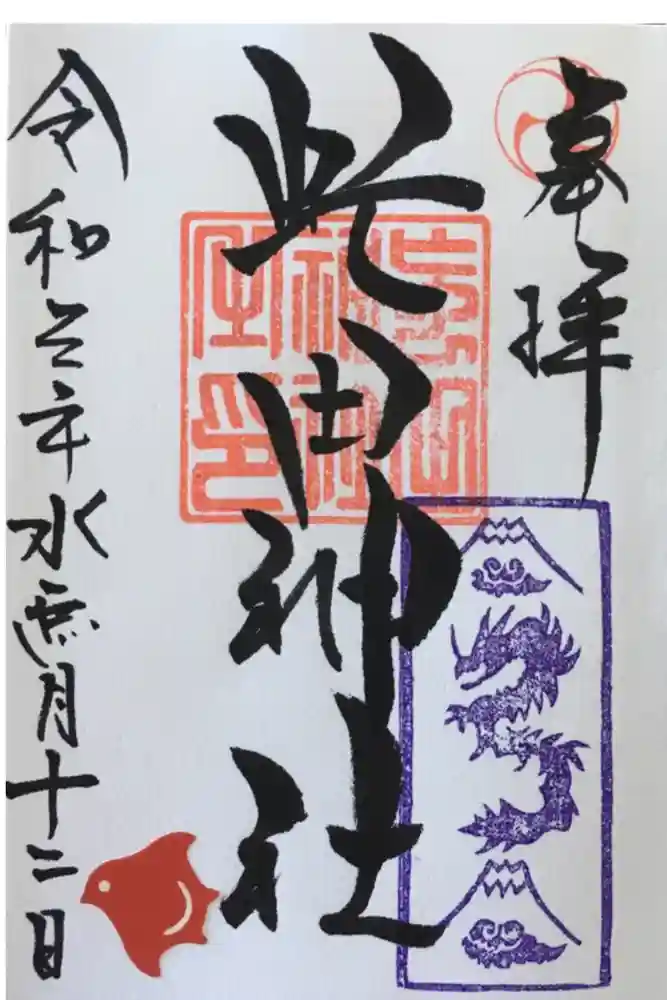 奉拝
田神社
令和六年水無月十二日